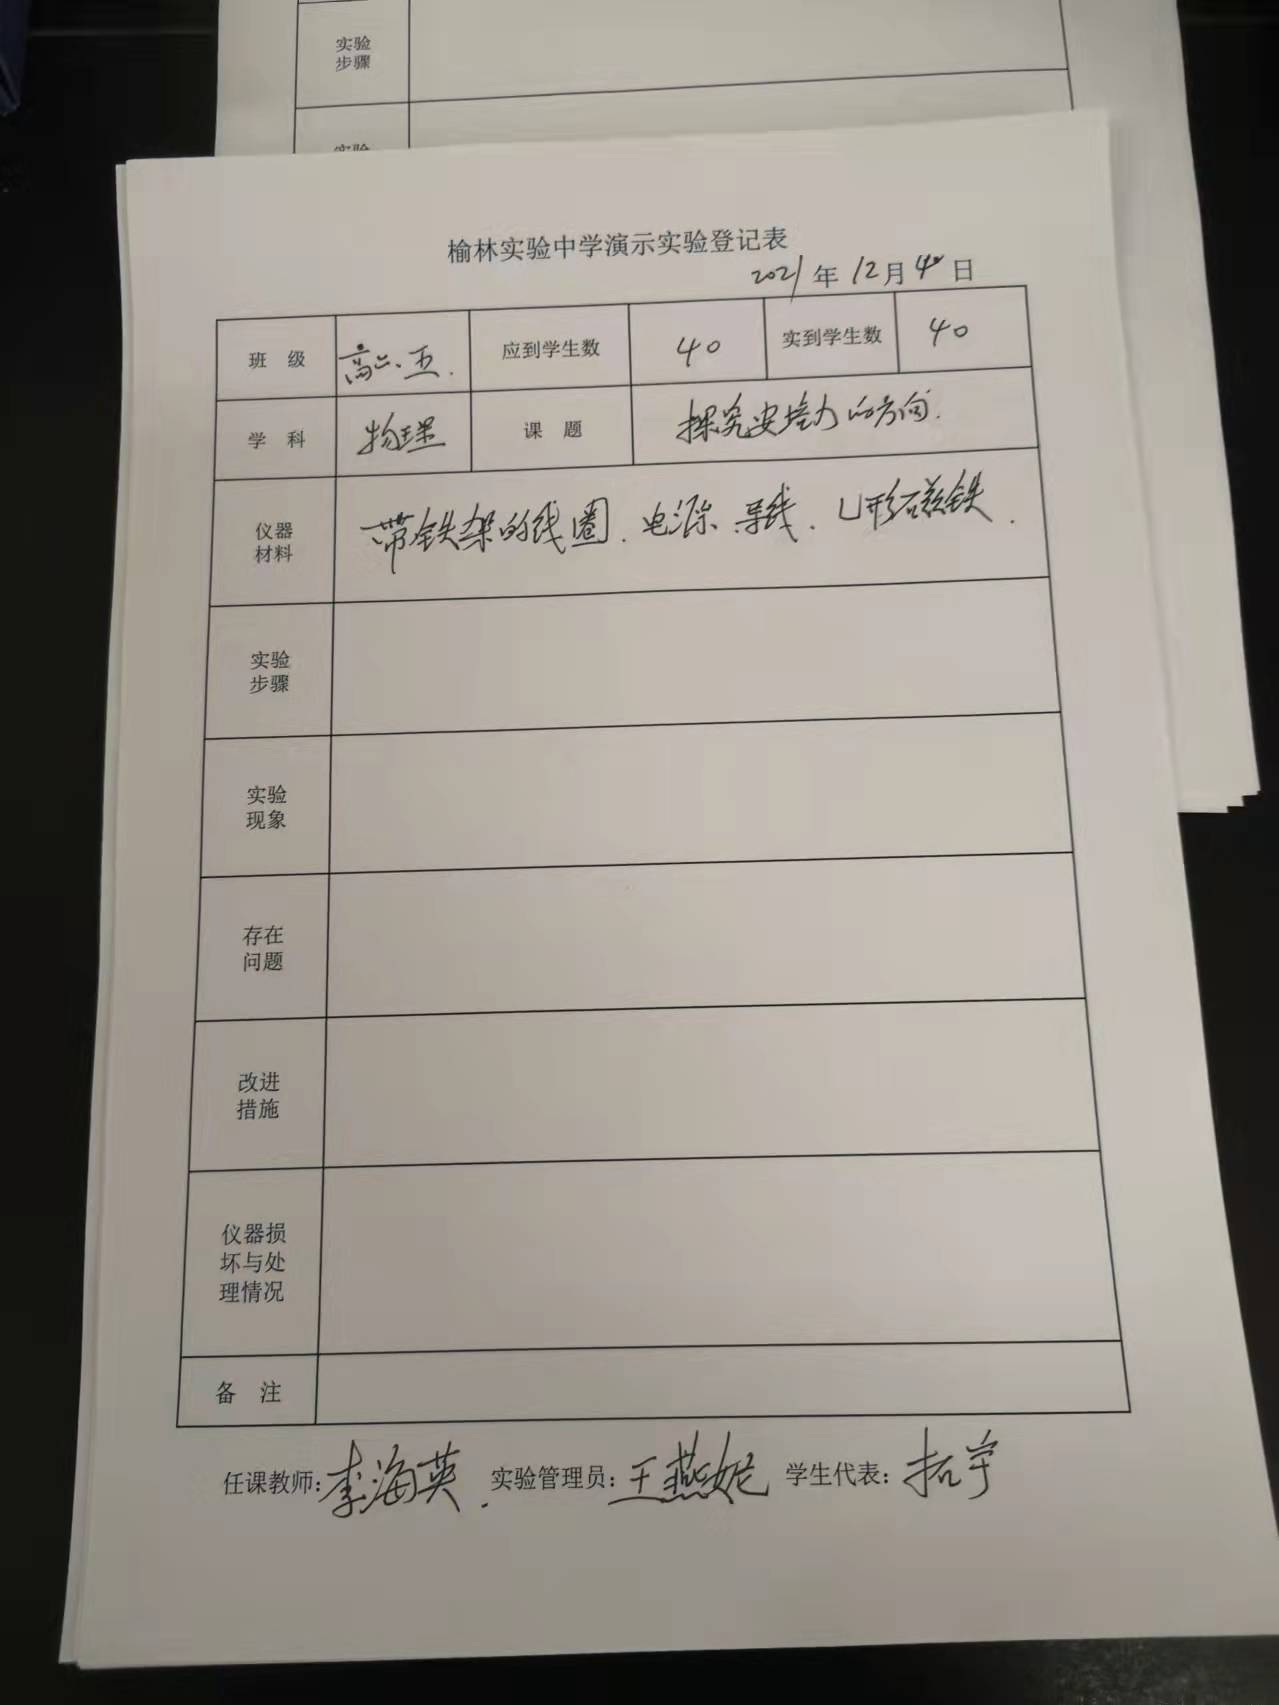 实验
步骤
实验
榆林实验中学演示实验登记表
2021年12月4日
班 级 高二、五. 应到学生数 40 实到学生数 40
学 科 物理 课 题 探究安培力的方向.
仪器
材料
带铁架的线圈、电源、导线、U形磁铁.
实验
步骤
实验
现象
存在
问题
改进
措施
仪器损
坏与处
理情况
备 注
任课教师:李海英. 实验管理员:王燕妮 学生代表:拓宇